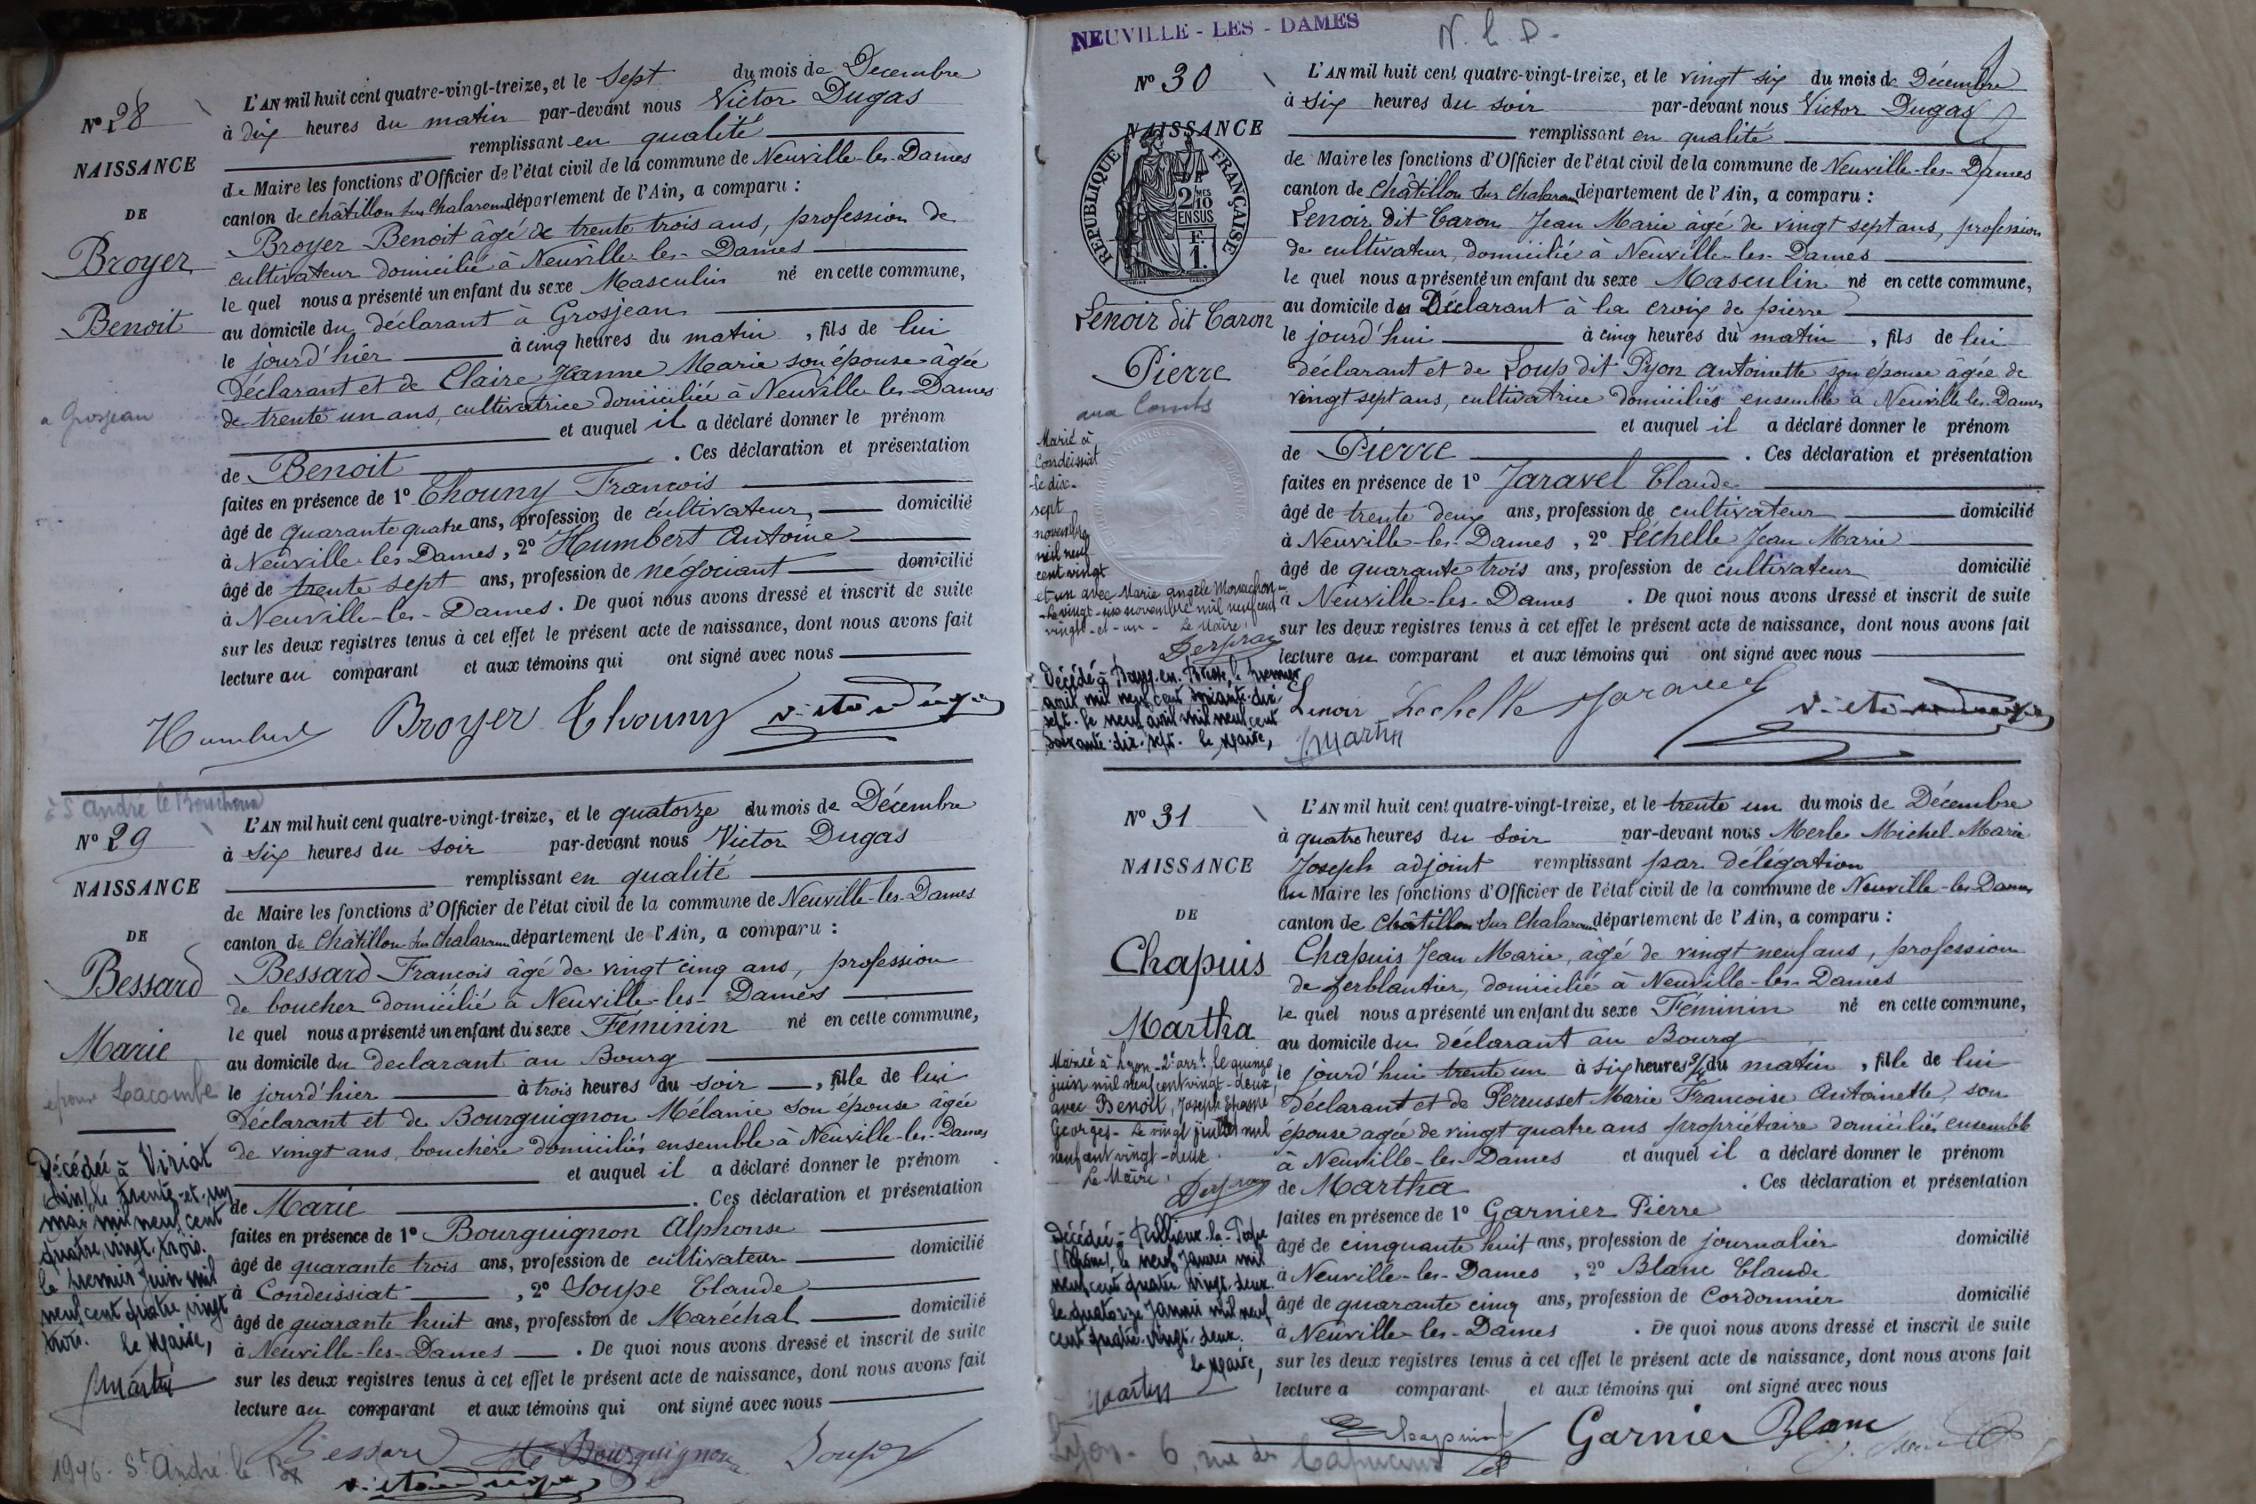 N° 28
NAISSANCE
DE
Broyer
Benoit
a Grosjean
L'AN mil huit cent quatre-vingt-treize, et le Sept du mois de Decembre
à dix heures du matin par-devant nous Victor Dugas
remplissant en qualité
de Maire les fonctions d'Officier de l'état civil de la commune de Neuville-les-Dames
canton de Châtillon sur Chalaronne département de l'Ain, a comparu :
Broyer Benoit âgé de trente trois ans, profession de
cultivateur domicilié à Neuville-les-Dames
le quel nous a présenté un enfant du sexe Masculin né en cette commune,
au domicile du déclarant à Grosjean
le jourd'hier à cinq heures du matin, fils de lui
Déclarant et de Claire Jeanne Marie son épouse âgée
de trente un ans, cultivatrice domiciliée à Neuville les Dames
et auquel il a déclaré donner le prénom
de Benoit. Ces déclaration et présentation
faites en présence de 1° Chouny Francois
âgé de quarante quatre ans, profession de cultivateur, domicilié
à Neuville-les Dames, 2° Humbert Antoine
âgé de trente sept ans, profession de négociant domicilié
à Neuville-les-Dames. De quoi nous avons dressé et inscrit de suite
sur les deux registres tenus à cet effet le présent acte de naissance, dont nous avons fait
lecture au comparant et aux témoins qui ont signé avec nous
Humbert Broyer Chouny Victor Dugas
à St André le Bouchoux
N° 29
NAISSANCE
DE
Bessard
Marie
épouse Lacombe
Décédée à Viriat
(Ain), le trente-et-un
mai mil neuf cent
quatre-vingt-trois.
le premier Juin mil
neuf cent quatre vingt
trois. Le Maire,
Martin
L'AN mil huit cent quatre-vingt-treize, et le quatorze du mois de Décembre
à Six heures du soir par-devant nous Victor Dugas
remplissant en qualité
de Maire les fonctions d'Officier de l'état civil de la commune de Neuville-les-Dames
canton de Châtillon sur Chalaronne département de l'Ain, a comparu :
Bessard Francois âgé de vingt cinq ans, profession
de boucher domicilié à Neuville-les-Dames
le quel nous a présenté un enfant du sexe Féminin né en cette commune,
au domicile du declarant au Bourg
le jourd'hier à trois heures du soir, fille de lui
Déclarant et de Bourguignon Mélanie son épouse âgée
de vingt ans, bouchère domiciliés ensemble à Neuville-les-Dames
et auquel il a déclaré donner le prénom
de Marie. Ces déclaration et présentation
faites en présence de 1° Bourguignon Alphonse
âgé de quarante trois ans, profession de cultivateur domicilié
à Condeissiat, 2° Soupe Claude
âgé de quarante huit ans, profession de Maréchal domicilié
à Neuville-les-Dames. De quoi nous avons dressé et inscrit de suite
sur les deux registres tenus à cet effet le présent acte de naissance, dont nous avons fait
lecture au comparant et aux témoins qui ont signé avec nous
Bessard Bourguignon Soupe
1946. St André le Bx
Victor Dugas
NEUVILLE-LES-DAMES
N. L. D.
N° 30
NAISSANCE
RÉPUBLIQUE FRANÇAISE
2/10 EN SUS
F. 1.
Lenoir dit Caron
Pierre
aux Combs
Marié à
Condeissiat
le dix-
sept
novembre
mil neuf
cent vingt
et un avec Marie angèle Monachon
Le vingt-six novembre mil neuf cent
vingt-et-un. Le Maire,
Décédé à Bourg-en-Bresse, le premier
avril mil neuf cent soixante-dix-
sept. le neuf avril mil neuf cent
soixante-dix-sept. Le Maire,
Martin
L'AN mil huit cent quatre-vingt-treize, et le vingt six du mois de Décembre
à Six heures du soir par-devant nous Victor Dugas
remplissant en qualité
de Maire les fonctions d'Officier de l'état civil de la commune de Neuville-les-Dames
canton de Châtillon sur Chalaronne département de l'Ain, a comparu :
Lenoir dit Caron Jean Marie âgé de vingt sept ans, profession
de cultivateur, domicilié à Neuville-les-Dames
le quel nous a présenté un enfant du sexe Masculin né en cette commune,
au domicile du Déclarant à la croix de pierre
le jourd'hui à cinq heures du matin, fils de lui
déclarant et de Loup dit Pyon Antoinette son épouse âgée de
vingt sept ans, cultivatrice domiciliés ensemble à Neuville-les-Dames
et auquel il a déclaré donner le prénom
de Pierre. Ces déclaration et présentation
faites en présence de 1° Jaravel Claude
âgé de trente deux ans, profession de cultivateur domicilié
à Neuville-les-Dames, 2° Léchelle Jean Marie
âgé de quarante trois ans, profession de cultivateur domicilié
à Neuville-les-Dames. De quoi nous avons dressé et inscrit de suite
sur les deux registres tenus à cet effet le présent acte de naissance, dont nous avons fait
lecture au comparant et aux témoins qui ont signé avec nous
Lenoir Lechelle Jaravel Victor Dugas
N° 31
NAISSANCE
DE
Chapuis
Martha
Mariée à Lyon-2e arrt le quinze
juin mil neuf cent vingt-deux,
avec Benoît, Joseph
Georges. Le vingt juillet mil
neuf cent vingt-deux.
Le Maire,
Décédée à Rillieux-la-Pape
(Rhône), le neuf Janvier mil
neuf cent quatre vingt deux.
le quatorze Janvier mil neuf
cent quatre-vingt-deux.
Le Maire,
Martin
L'AN mil huit cent quatre-vingt-treize, et le trente un du mois de Décembre
à quatre heures du soir par-devant nous Merle Michel Marie
Joseph adjoint remplissant par délégation
du Maire les fonctions d'Officier de l'état civil de la commune de Neuville-les-Dames
canton de Châtillon sur Chalaronne département de l'Ain, a comparu :
Chapuis Jean Marie, âgé de vingt neuf ans, profession
de ferblantier, domicilié à Neuville-les-Dames
le quel nous a présenté un enfant du sexe Féminin né en cette commune,
au domicile du déclarant au Bourg
le jourd'hui trente un à six heures 3/4 du matin, fille de lui
déclarant et de Perrusset Marie Francoise Antoinette, son
épouse agée de vingt quatre ans propriétaire domiciliés ensemble
à Neuville-les-Dames et auquel il a déclaré donner le prénom
de Martha. Ces déclaration et présentation
faites en présence de 1° Garnier Pierre
âgé de cinquante huit ans, profession de journalier domicilié
à Neuville-les-Dames, 2° Blanc Claude
âgé de quarante cinq ans, profession de Cordonnier domicilié
à Neuville-les-Dames. De quoi nous avons dressé et inscrit de suite
sur les deux registres tenus à cet effet le présent acte de naissance, dont nous avons fait
lecture a comparant et aux témoins qui ont signé avec nous
Chapuis Garnier Blanc
Lyon - 6, rue des Capucins